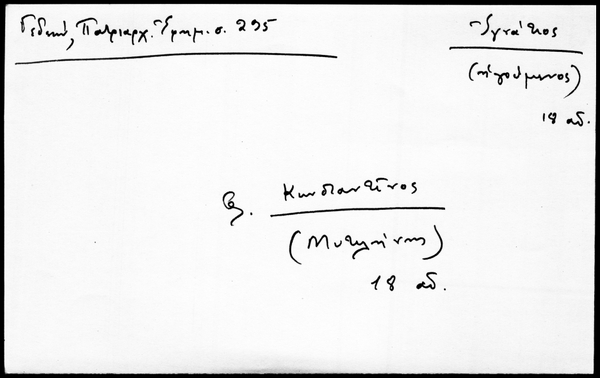 Γεδεών, Πατριαρχ. Ἐφημ. σ. 295
Ἰγνάτιος
(ἡγούμενος)
18 αἰ.
βλ. Κωνσταντῖνος
(Μυτιλήνης)
18 αἰ.